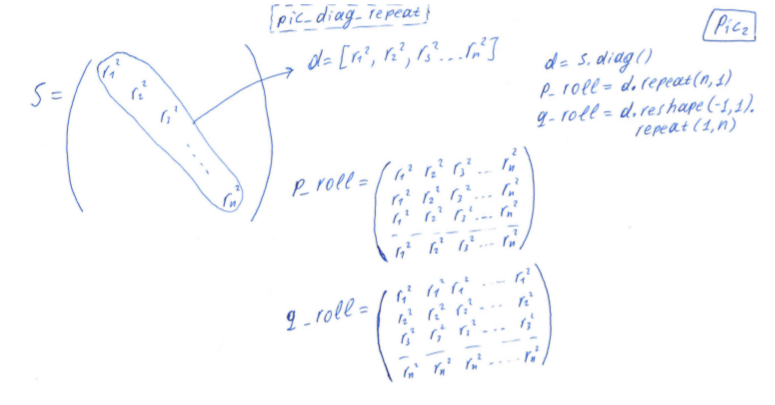 {pic_diag_repeat}
Pic₂
d = [r₁², r₂², r₃² ... rₙ²]
d = S.diag()
p_roll = d.repeat(n,1)
q_roll = d.reshape(-1,1).
repeat(1,n)
S =
r₁²
r₂²
r₃²
.....
rₙ²
p_roll =
r₁² r₂² r₃² ... rₙ²
r₁² r₂² r₃² ... rₙ²
r₁² r₂² r₃² ... rₙ²
r₁² r₂² r₃² ... rₙ²
q_roll =
r₁² r₁² r₁² ... r₁²
r₂² r₂² r₂² ... r₂²
r₃² r₃² r₃² ... r₃²
rₙ² rₙ² rₙ² .... rₙ²